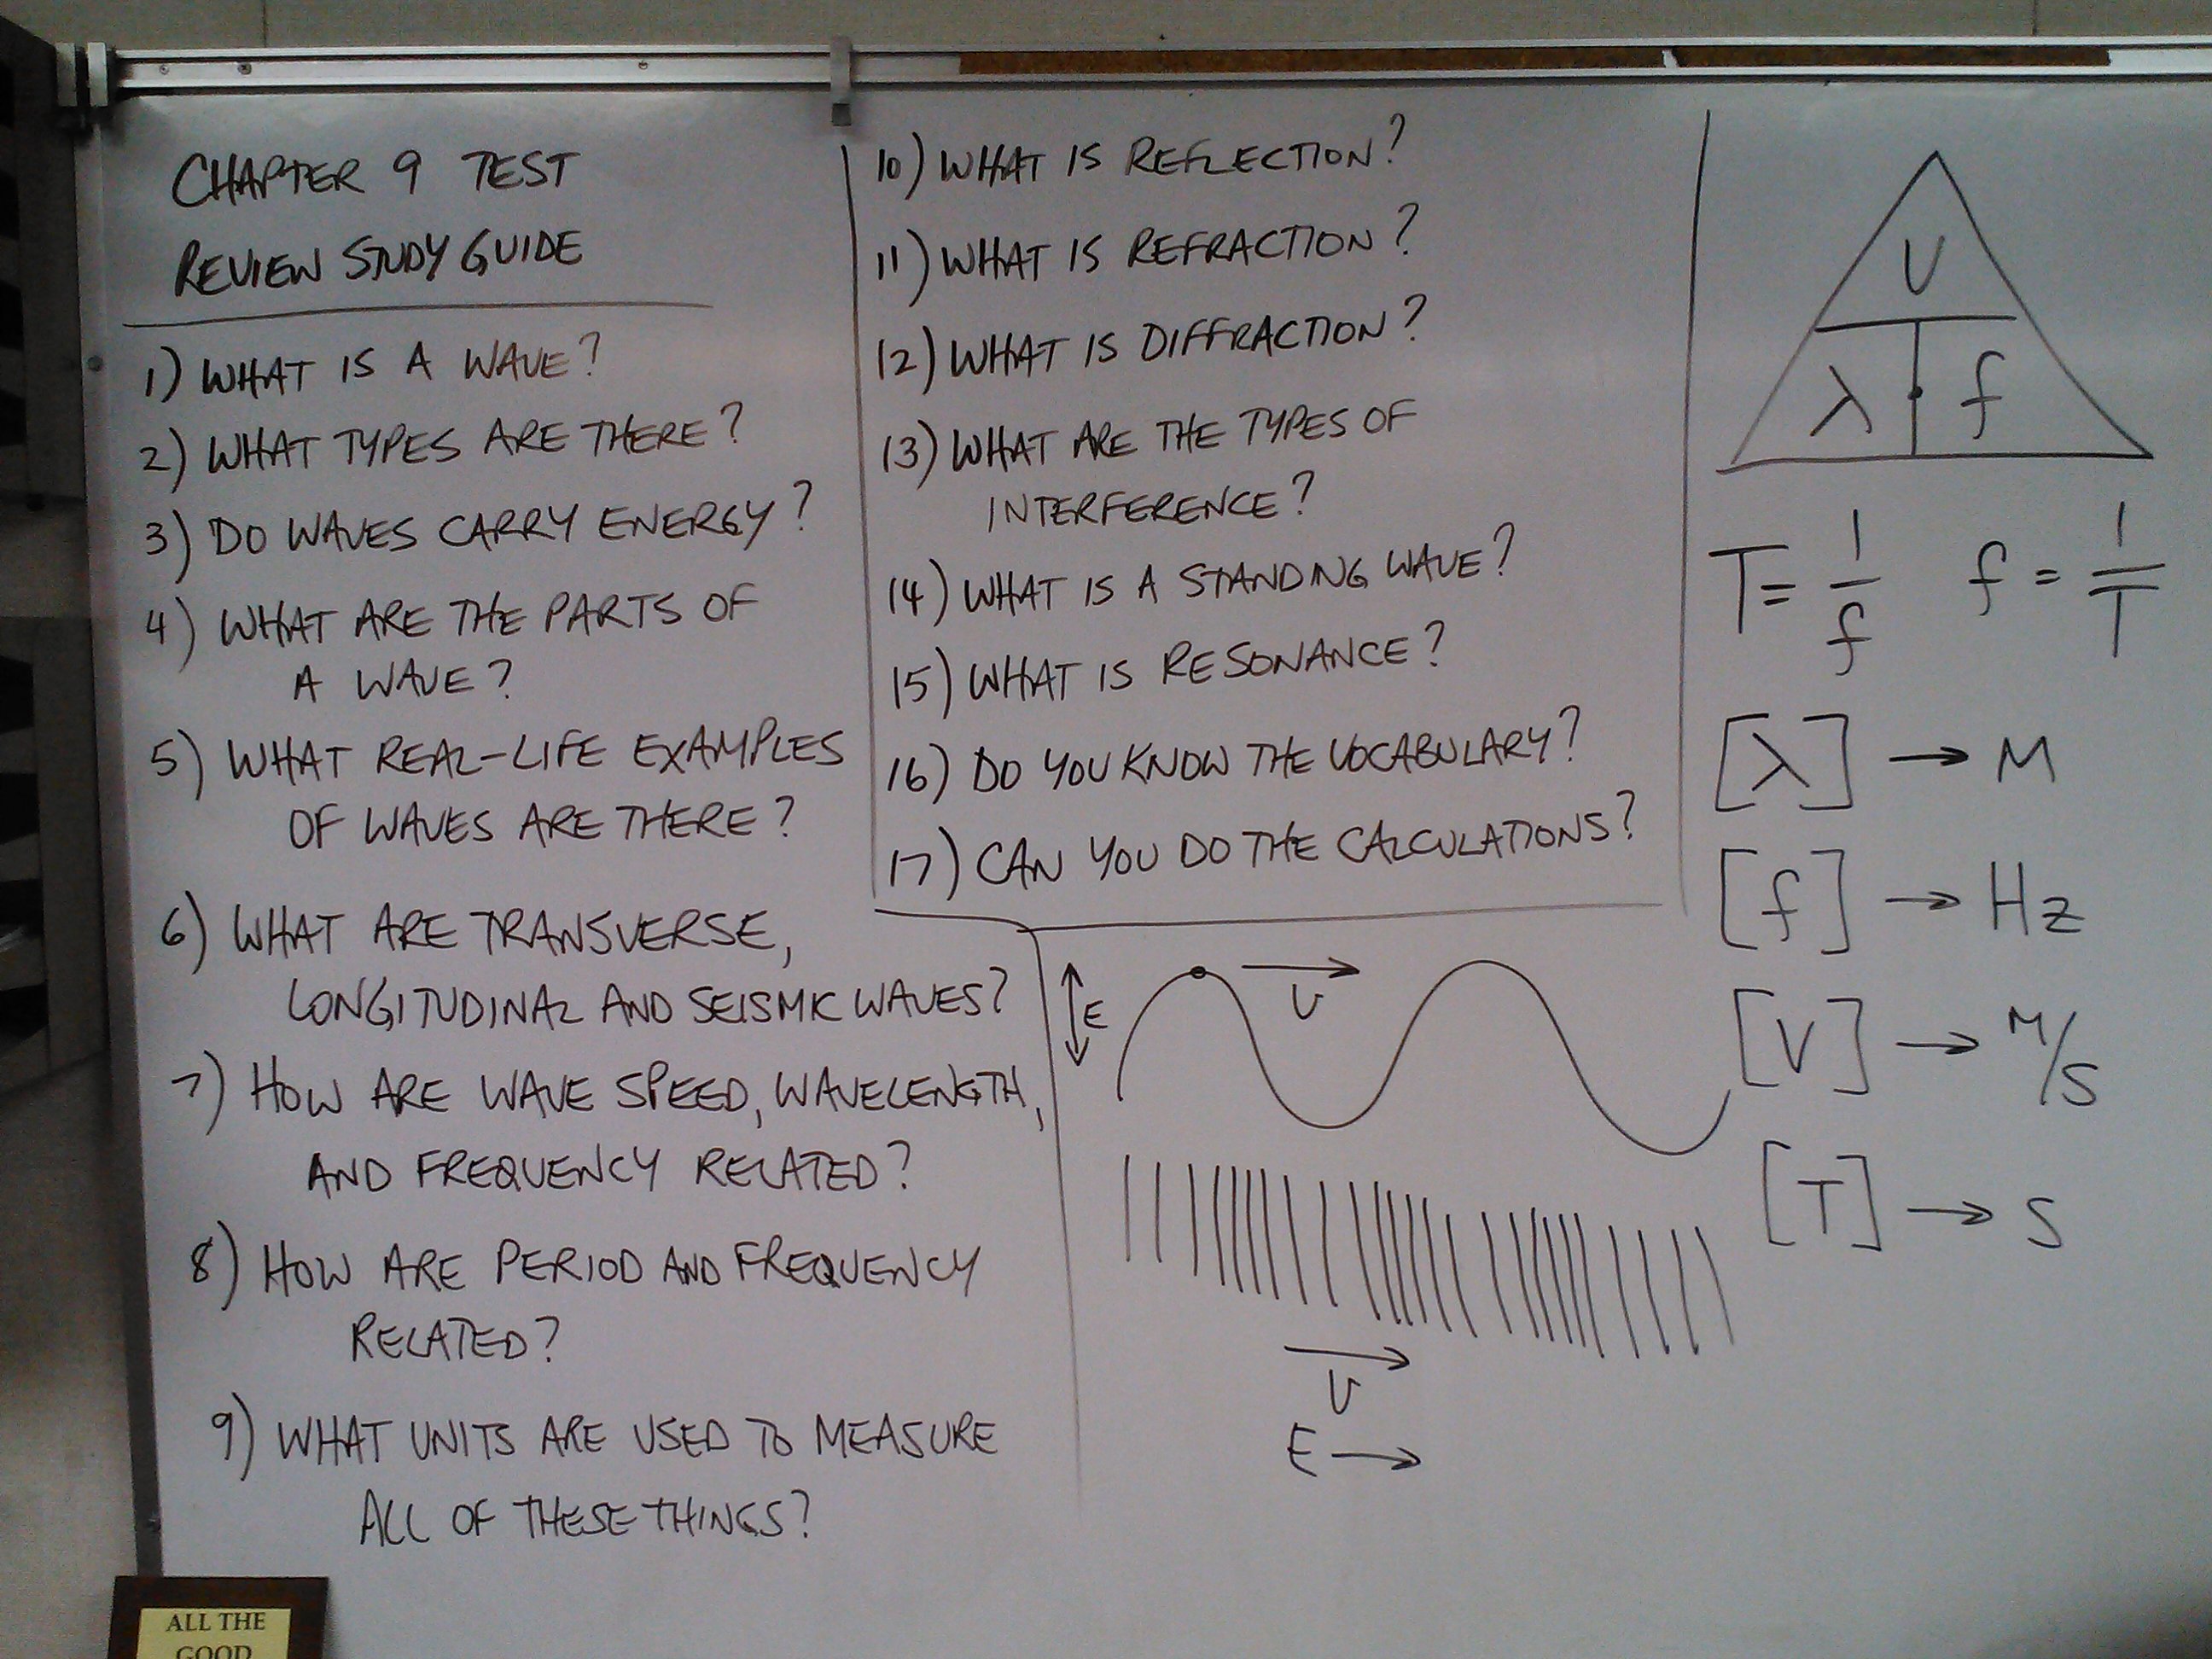 CHAPTER 9 TEST
REVIEW STUDY GUIDE
1) WHAT IS A WAVE?
2) WHAT TYPES ARE THERE?
3) DO WAVES CARRY ENERGY?
4) WHAT ARE THE PARTS OF
A WAVE?
5) WHAT REAL-LIFE EXAMPLES
OF WAVES ARE THERE?
6) WHAT ARE TRANSVERSE,
LONGITUDINAL AND SEISMIC WAVES?
7) HOW ARE WAVE SPEED, WAVELENGTH,
AND FREQUENCY RELATED?
8) HOW ARE PERIOD AND FREQUENCY
RELATED?
9) WHAT UNITS ARE USED TO MEASURE
ALL OF THESE THINGS?
10) WHAT IS REFLECTION?
11) WHAT IS REFRACTION?
12) WHAT IS DIFFRACTION?
13) WHAT ARE THE TYPES OF
INTERFERENCE?
14) WHAT IS A STANDING WAVE?
15) WHAT IS RESONANCE?
16) DO YOU KNOW THE VOCABULARY?
17) CAN YOU DO THE CALCULATIONS?
E
V
V
E →
V
λ · f
T = 1/f f = 1/T
[λ] → M
[f] → Hz
[V] → M/S
[T] → S
ALL THE
GOOD